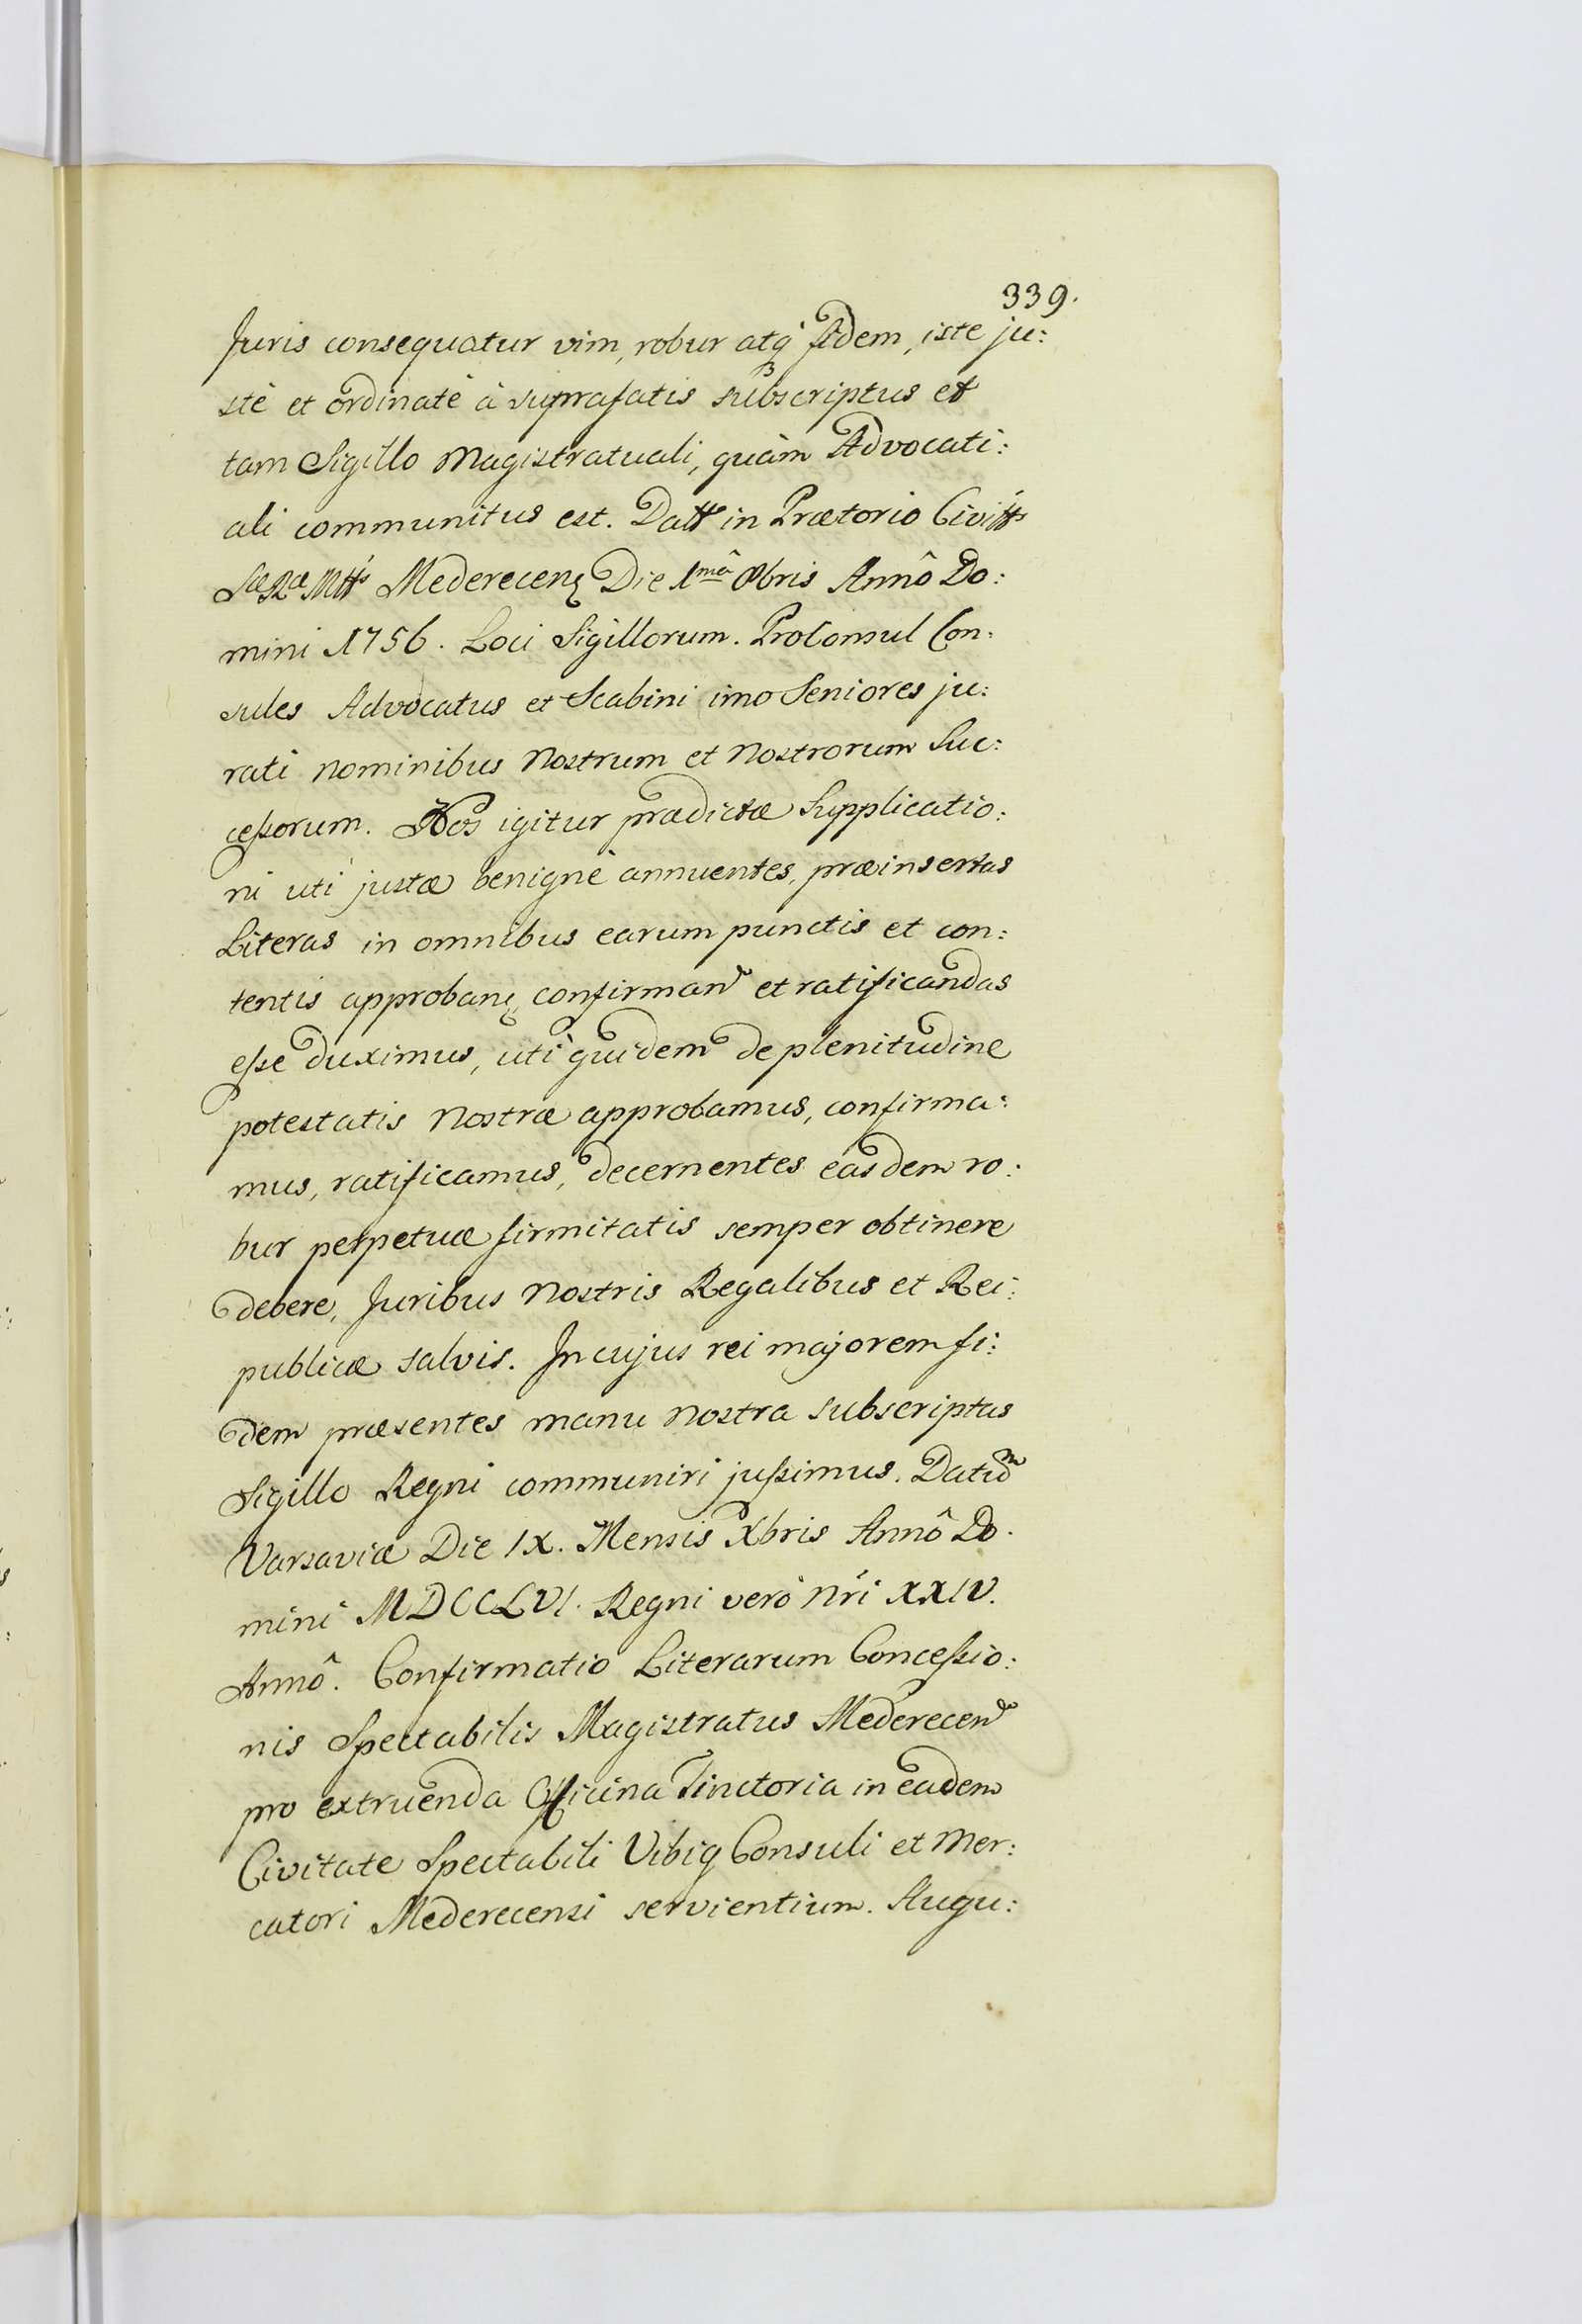 339.
Juris consequatur vim, robur atq́ fidem, iste ju:
stè et ordinatè à suprafatis subscriptus et
tam Sigillo Magistratuali, quàm Advocati:
ali communitus est. Datt in Prætorio Civitt͛s
Sæ Ræ Mtt͛s Mederecen Die 1mâ 8bris Annô Do:
mini 1756. Loci Sigillorum. ProConsul Con:
sules Advocatus et Scabini imo Seniores ju:
rati nominibus Nostrum et Nostrorum Suc:
ceßorum. Nos igitur prædictæ Supplicatio:
ni uti justæ benignè annuentes, præinsertas
Literas in omnibus earum punctis et con:
tentis approban, confirman et ratificandas
eße duximus, uti quidem de plenitudine
potestatis Nostræ approbamus, confirma:
mus, ratificamus, decernentes easdem ro:
bur perpetuæ firmitatis semper obtinere
debere, Juribus Nostris Regalibus et Rei:
publicæ salvis. In cujus rei majorem fi:
dem præsentes manu Nostra subscriptas
Sigillo Regni communiri jußimus. Datum
Varsaviæ Die IX. Mensis Xbris Annô Do.
mini MDCCLVI. Regni verò Nr̃i XXIV.
Annô. Confirmatio Literarum Conceßio:
nis Spectabilis Magistratus Mederecen
pro extruenda Officina Tinctoria in eadem
Civitate Spectabili Vibig Consuli et Mer:
catori Mederecensi servientium. Augu: